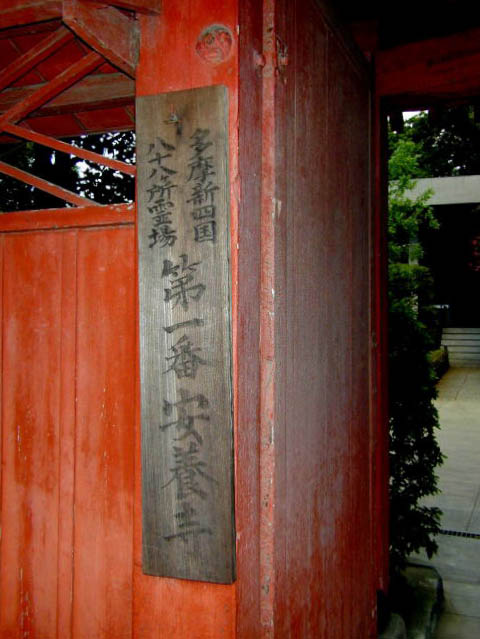 多摩新四国
八十八所霊場
第一番安養寺